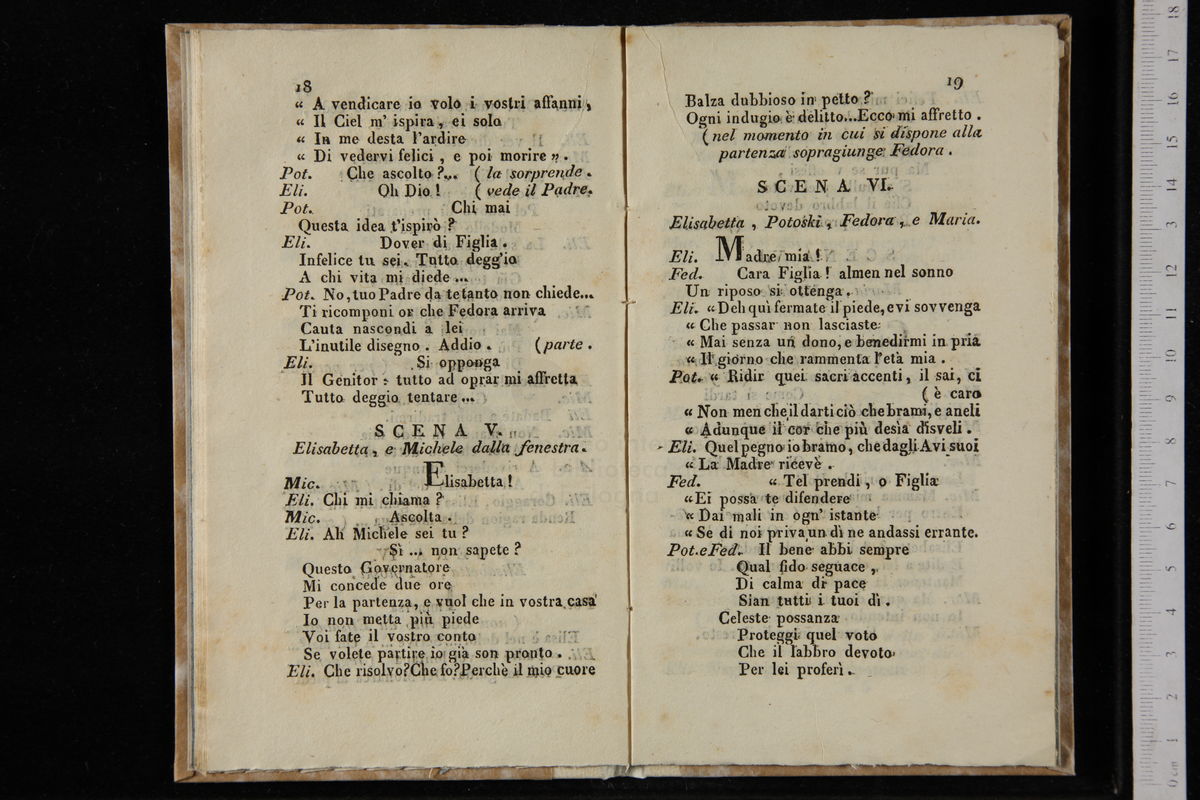 18
“ A vendicare io volo i vostri affanni,
“ Il Ciel m' ispira, ei solo
“ In me desta l'ardire
“ Di vedervi felici, e poi morire „.
Pot. Che ascolto?... ( la sorprende.
Eli. Oh Dio! ( vede il Padre.
Pot. Chi mai
Questa idea t'ispirò?
Eli. Dover di Figlia.
Infelice tu sei. Tutto degg'io
A chi vita mi diede ...
Pot. No, tuo Padre da te tanto non chiede...
Ti ricomponi or che Fedora arriva
Cauta nascondi a lei
L'inutile disegno. Addio. (parte.
Eli. Si opponga
Il Genitor: tutto ad oprar mi affretta
Tutto deggio tentare ...
SCENA V.
Elisabetta, e Michele dalla fenestra.
Mic. Elisabetta!
Eli. Chi mi chiama?
Mic. Ascolta.
Eli. Ah Michele sei tu?
Sì ... non sapete?
Questo Governatore
Mi concede due ore
Per la partenza, e vuol che in vostra casa
Io non metta più piede
Voi fate il vostro conto
Se volete partire io già son pronto.
Eli. Che risolvo? Che fo? Perchè il mio cuore
19
Balza dubbioso in petto?
Ogni indugio è delitto...Ecco mi affretto.
( nel momento in cui si dispone alla
partenza sopragiunge Fedora.
SCENA VI.
Elisabetta, Potoski, Fedora, e Maria.
Eli. Madre mia!
Fed. Cara Figlia! almen nel sonno
Un riposo si ottenga.
Eli. “ Deh quì fermate il piede, e vi sovvenga
“ Che passar non lasciaste
“ Mai senza un dono, e benedirmi in pria
“ Il giorno che rammenta l'età mia.
Pot. “ Ridir quei sacri accenti, il sai, ci
( è caro
“ Non men che il darti ciò che brami, e aneli
“ Adunque il cor che più desia disveli.
Eli. Quel pegno io bramo, che dagli Avi suoi
“ La Madre ricevè.
Fed. “ Tel prendi, o Figlia
“ Ei possa te difendere
“ Dai mali in ogn' istante
“ Se di noi priva un dì ne andassi errante.
Pot. e Fed. Il bene abbi sempre
Qual fido seguace,
Di calma di pace
Sian tutti i tuoi dì.
Celeste possanza
Proteggi quel voto
Che il labbro devoto
Per lei proferì.